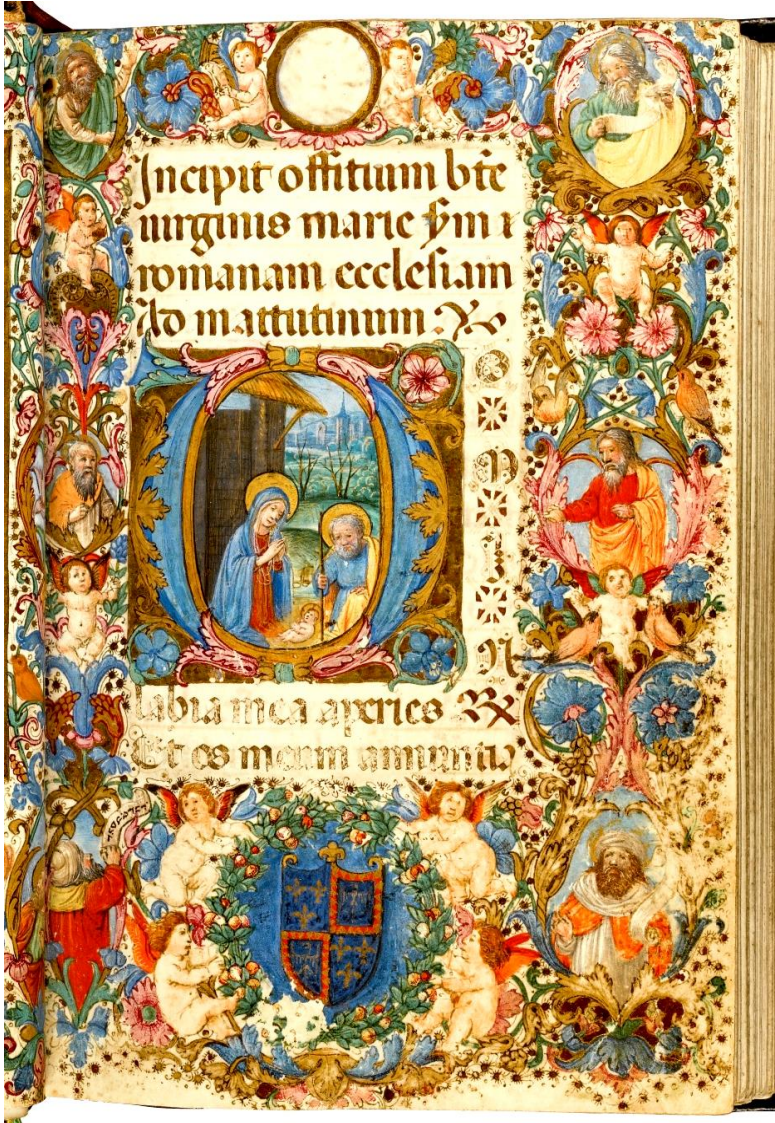 Incipit offitium bt̄e
uirginis marie s̄m i
romanam ecclesiam
Ad mattutinum.
D
O
M
I
N
labia mea aperies
Et os meum annuntia